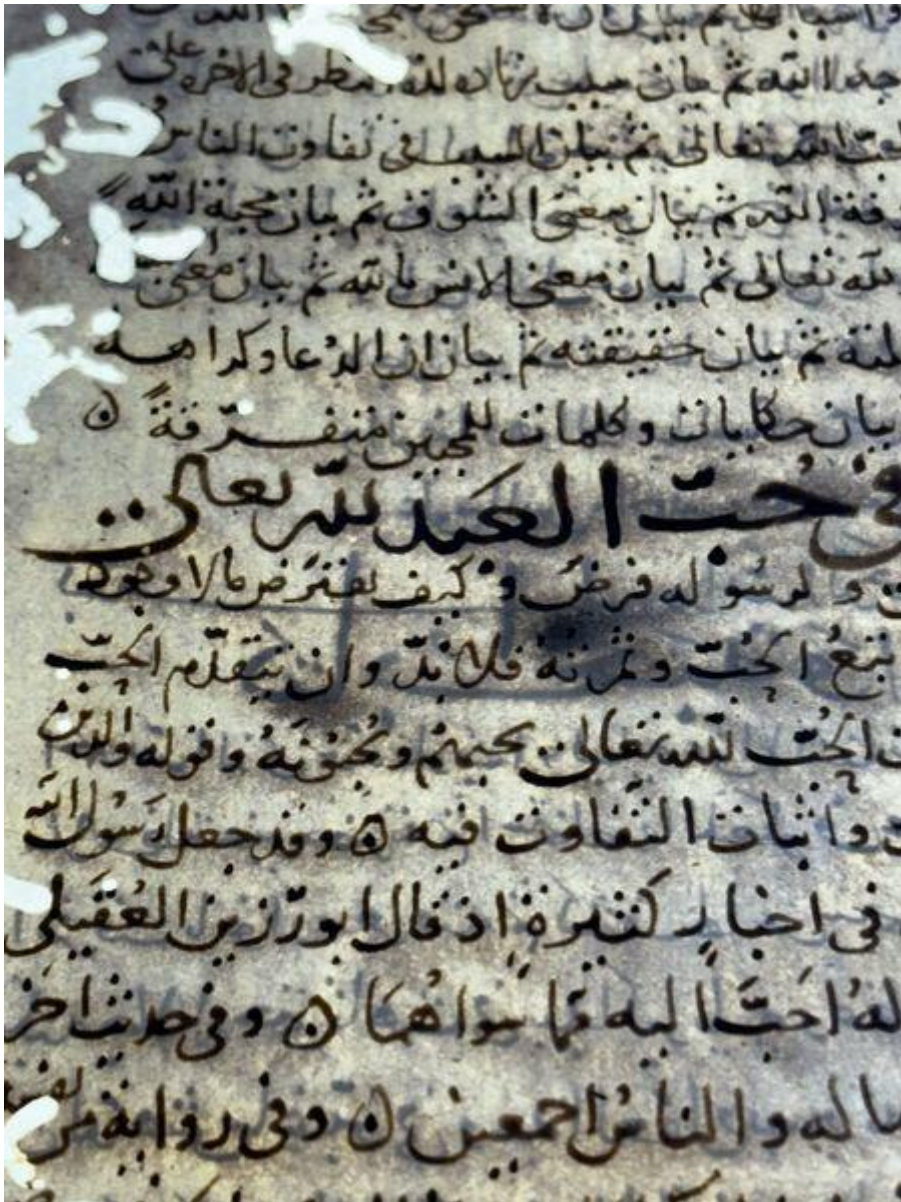 ثم بيان ان
الله ثم بيان سبب زياده لذة النظر في الاخره على
الله تعالى ثم بيان السبب في تفاوت الناس
الله ثم بيان معنى الشوق ثم بيان محبة الله
لله تعالى ثم بيان معنى الانس بالله ثم بيان معنى
ثم بيان حقيقته ثم بيان ان الدعا وكراهة
بيان حكايات وكلمات للمحبين متفرّقة ه
في حُبّ العَبد للّه تعالى
ولرسُوله فرضٌ وكيف يفترض مالا وجود
تتبعُ الحُبّ وثمرتهُ فلا بدّ وان يتقدّم الحبّ
الحُبّ للّه تعالى يحبهم ويُحبّونَهُ وقوله والذين
واثبات التفاوت فيه ه وقد جعل رَسُول الله
في اخبار كثيرة اذ قال ابو رّزين العُقَيلي
لهُ احَبَّ اليه ممّا سواهُمَا ه وفي حديث اخر
ماله والناس اجمعين ه وفي رواية من